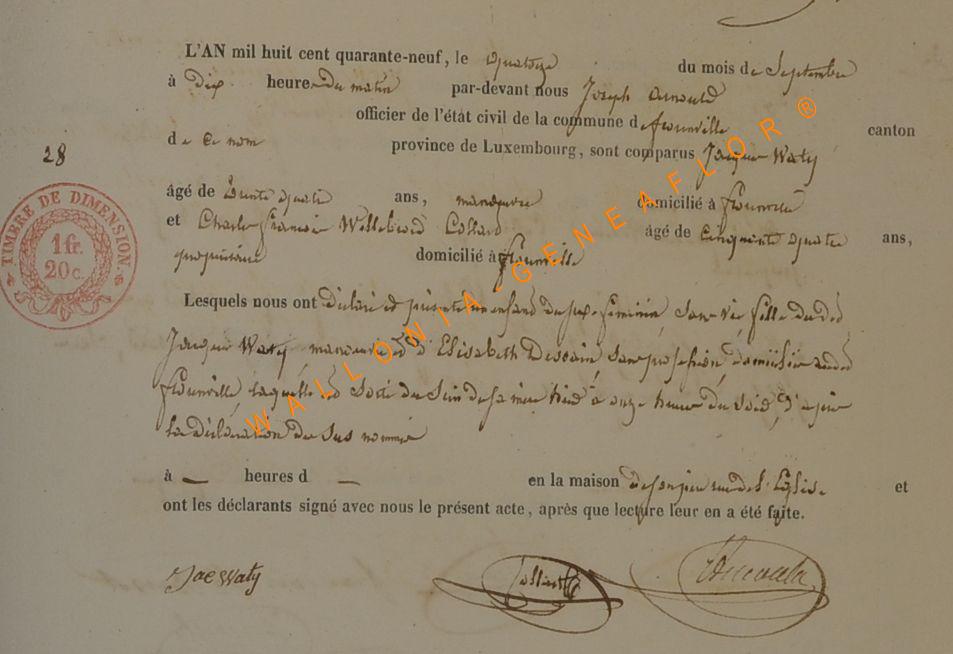 L'AN mil huit cent quarante-neuf, le quatorze du mois de Septembre
à dix heures du matin par-devant nous Joseph Arnould
officier de l'état civil de la commune de florenville canton
de ce nom province de Luxembourg, sont comparus Jacques Waty
28
âgé de trente quatre ans, manoeuvre domicilié à florenville
et Charles françois Willebrord Collard âgé de cinquante quatre ans,
propriétaire domicilié à florenville
TIMBRE DE DIMENSION.
1 fr.
20 c.
Lesquels nous ont déclaré et présenté un enfant du sexe féminin sans vie fille du dit
Jacques Waty manoeuvre et d'Elisabeth Descain, sans profession, domiciliés au dit
florenville laquelle est sortie du sein de sa mère hier à onze heures du soir, d'après
la déclaration des sus nommés
à — heures d — en la maison de son père rue de l'Eglise et
ont les déclarants signé avec nous le présent acte, après que lecture leur en a été faite.
Jac Waty Collard Arnould
WALLONIA-GENEAFLOR®